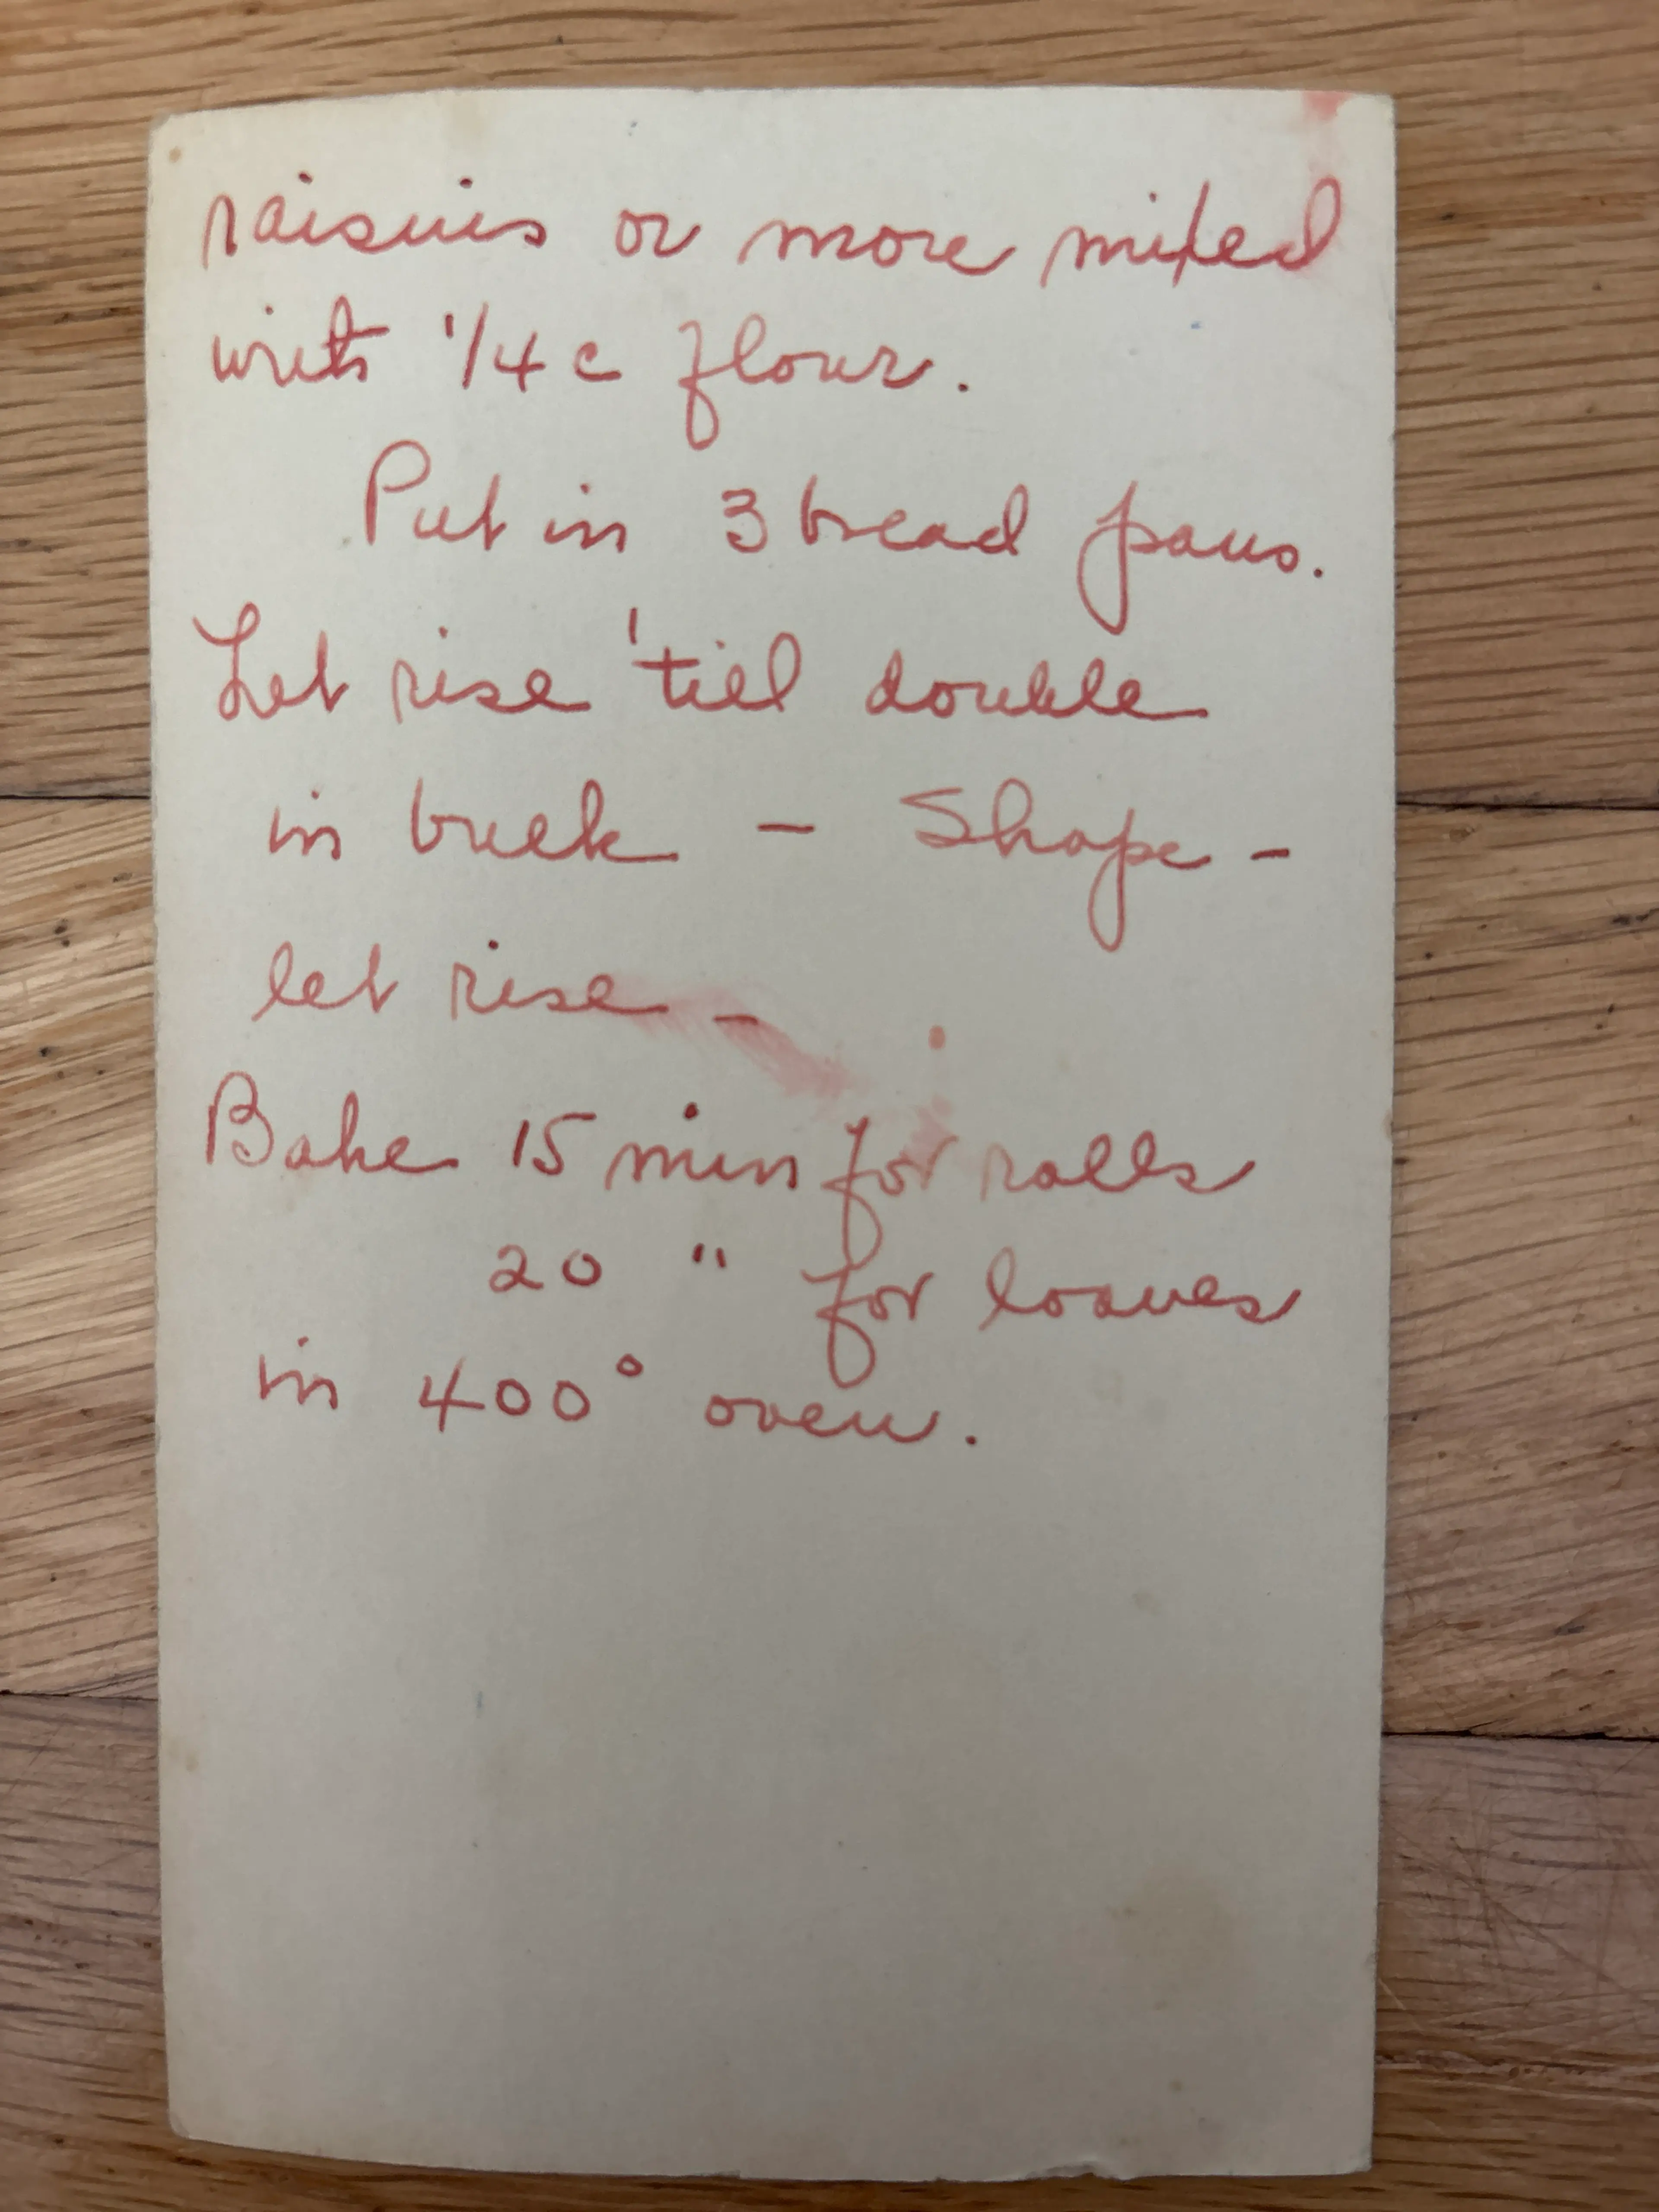 raisins or more mixed
with 1/4 c flour.
Put in 3 bread pans.
Let rise 'till double
in bulk - Shape -
let rise -
Bake 15 min for rolls
20 " for loaves
in 400° oven.